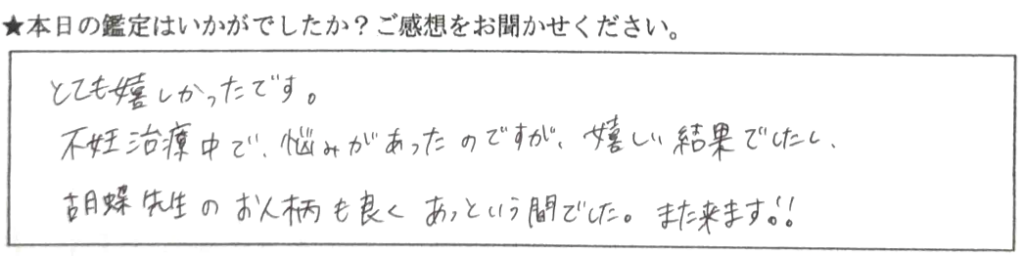 ★本日の鑑定はいかがでしたか？ご感想をお聞かせください。
とても嬉しかったです。
不妊治療中で、悩みがあったのですが、嬉しい結果でしたし、
胡蝶先生のお人柄も良くあっという間でした。また来ます!!